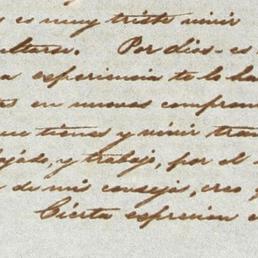 es muy triste vivir
Por dios - es
esperiencia te lo ha
en nuevas comprom
tienes y vivir tra
, y trabajo, por el
de mis consejos, creo
Cierta espresion